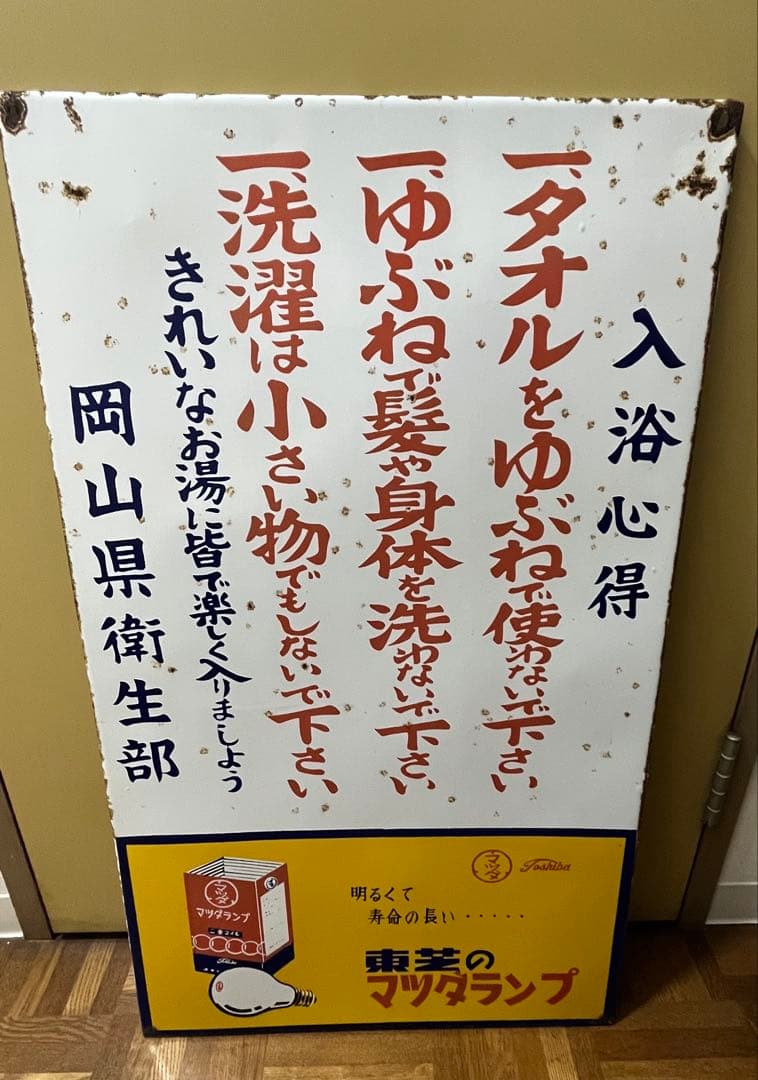 入浴心得
一、タオルをゆぶねで使わないで下さい
一、ゆぶねで髪や身体を洗わないで下さい
一、洗濯は小さい物でもしないで下さい
きれいなお湯に皆で楽しく入りましよう
岡山県衛生部
マツダ
Toshiba
明るくて
寿命の長い・・・・・
東芝の
マツダランプ
マツダ
マツダランプ
二重コイル
Toshiba